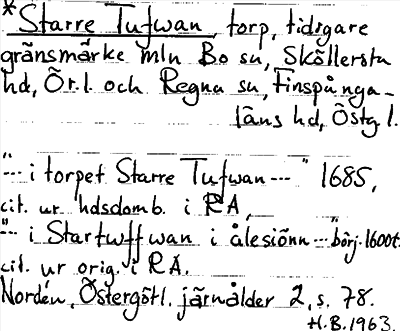 * Starre Tufwan, torp, tidigare
gränsmärke mln Bo sn, Sköllersta
hd, Ör. l. och Regna sn, Finspånga-
läns hd, Östg l.
"--- i torpet Starre Tufwan ---" 1685,
cit. ur hdsdomb. i RA,
"-- i Startwff wan i ålesiönn --- "börj. 1600t.
cit. ur orig. i RA.
Nordén, Östergötl. järnålder 2, s. 78.
H.B. 1963.